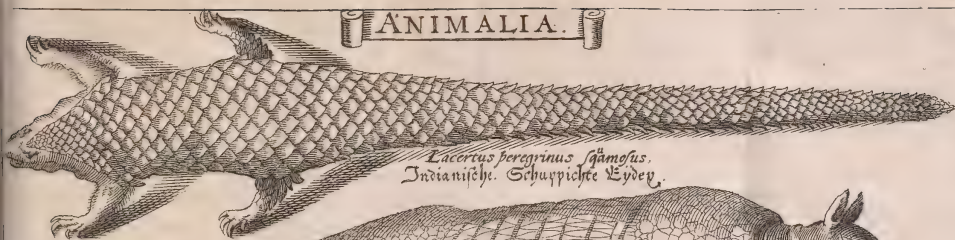 ANIMALIA.
Lacertus peregrinus squamosus.
Indianische. Schuppichte Eydex.